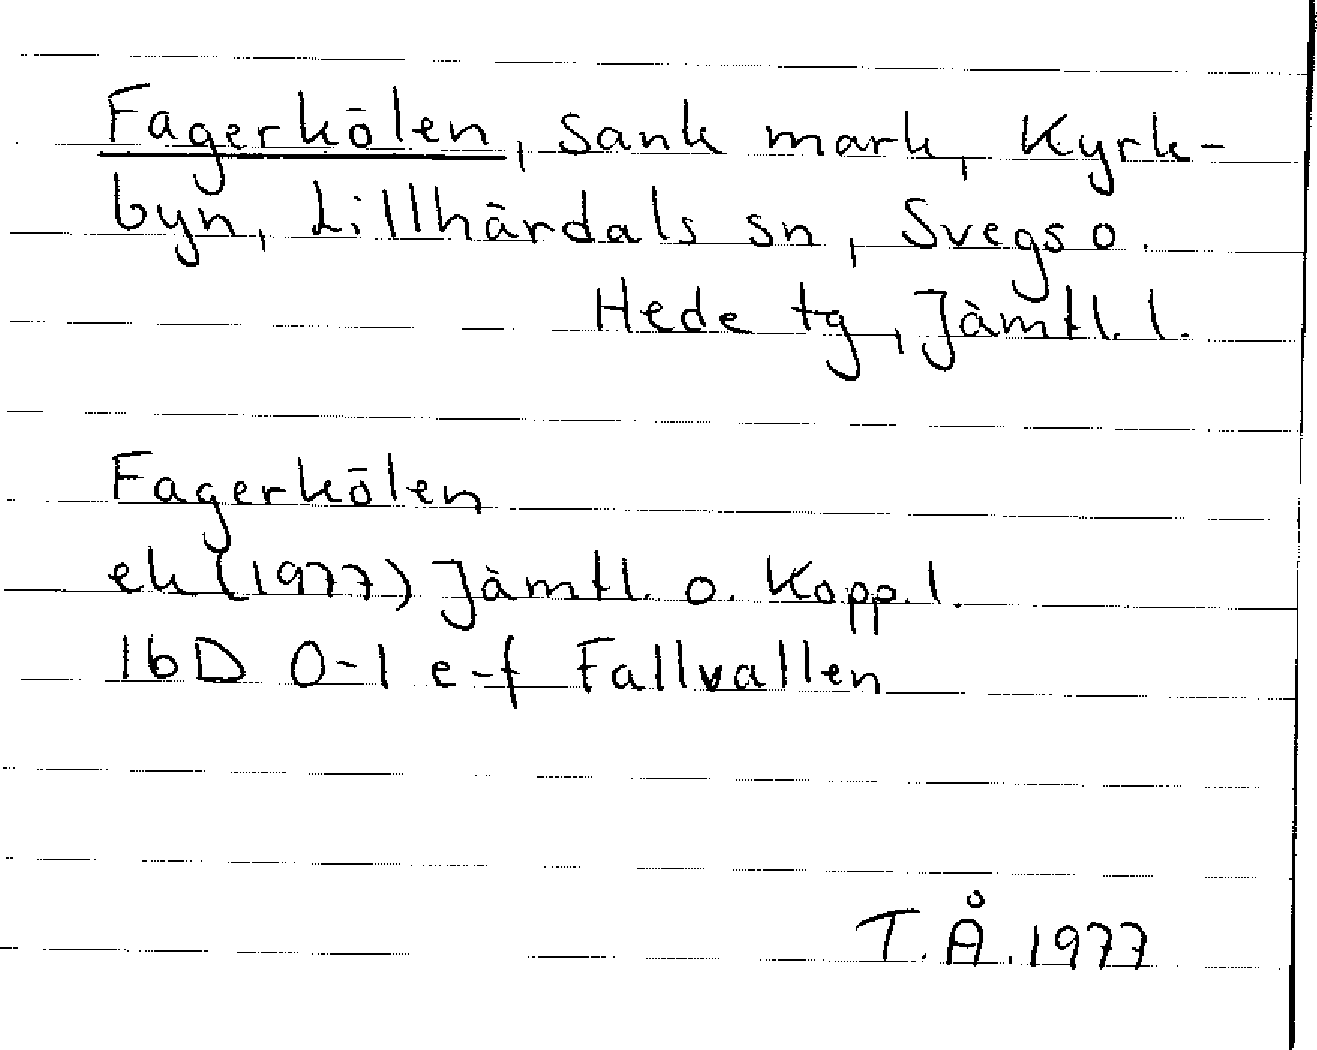 Fagerkölen, sank mark, Kyrk-
byn, Lillhärdals sn, Svegs o.
Hede tg, Jämtl. l.
Fagerkölen
ek (1977) Jämtl. o. Kopp. l.
16D 0-1 e-f Fallvallen
T.Å. 1977